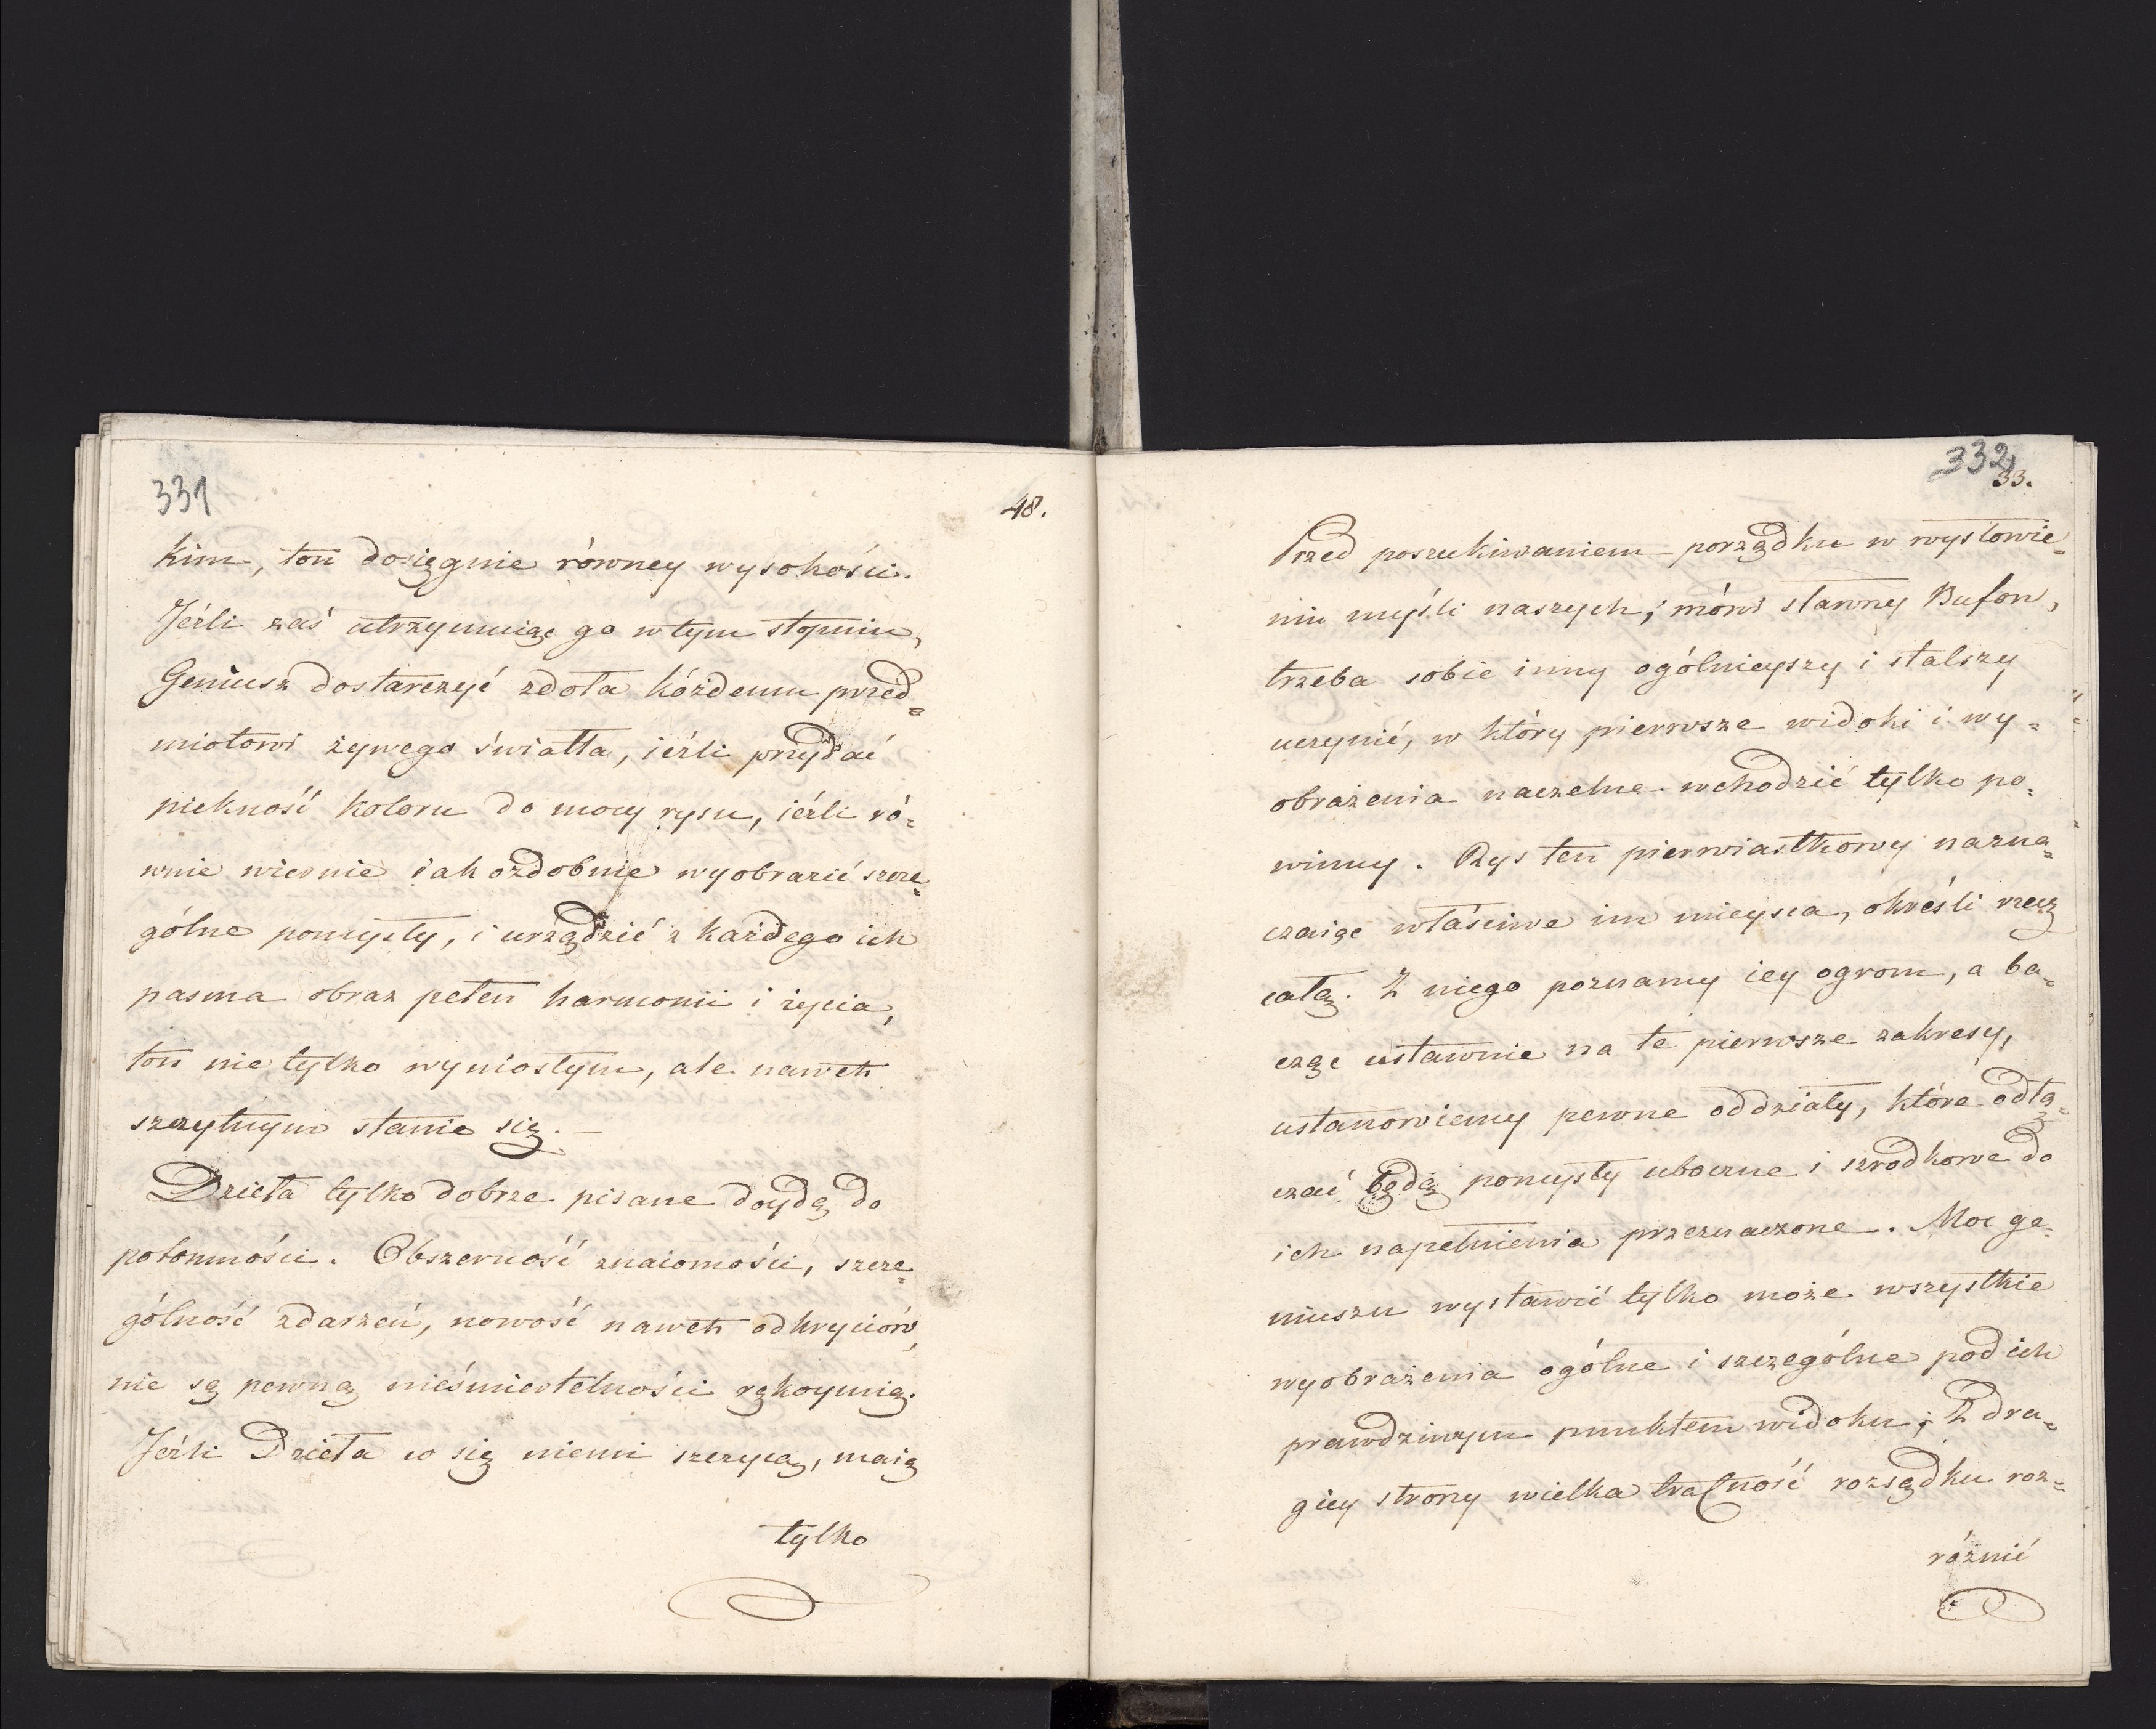 331
48.
kim, ton dosięgnie równey wysokości.
Jeźli zaś utrzymuiąc go w tym stopniu,
Geniusz dostarczyć zdoła kóżdemu przed=
miotowi żywego światła, ieźli przydać
piekność koloru do mocy rysu, ieźli ró=
wnie wiernie iak ozdobnie wyobrazić szcze=
gólne pomysły, i urządzić z każdego ich
pasma obraz pełen harmonii i życia,
ton nie tylko wyniosłym, ale nawet
szczytnym stanie się. —
Dzieła tylko dobrze pisane doydą do
potomności. Obszerność znaiomości, szcze=
gólność zdarzeń, nowość nawet odkryciów,
nie są pewną nieśmiertelności rękoymią.
Jeźli Dzieła co się niemi szczycą, maią
tylko
332
33.
Przed poszukiwaniem porządku w wysłowie=
niu myśli naszych, mówi sławny Bufon,
trzeba sobie inny ogólnieyszy i stalszy
uczynić, w który pierwsze widoki i wy=
obrażenia naczelne wchodzić tylko po=
winny. Rys ten pierwiastkowy nazna=
czaiąc właściwe im mieysca, okréśli rzecz
całą. Z niego poznamy iey ogrom, a ba=
cząc ustawnie na te pierwsze zakresy,
ustanowiemy pewne oddziały, które odłą=
czać będą pomysły uboczne i szrodkowe do
ich napełnienia przeznaczone. Moc ge=
niuszu wystawić tylko może wszystkie
wyobrażenia ogólne i szczególne pod ich
prawdziwym punktem widoku; Z dru=
giey strony wielka trafność rozsądku roz=
różnić